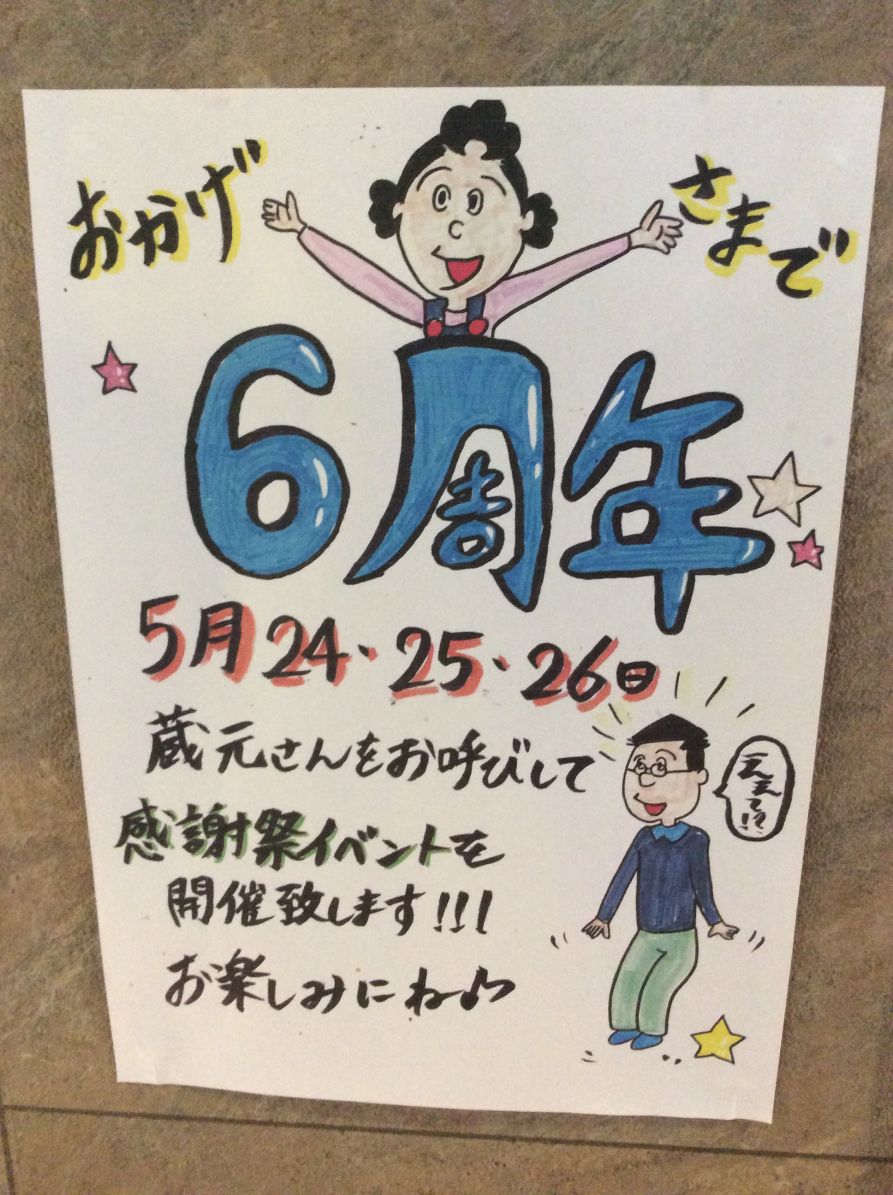 おかげ
さまで
6周年
5月24・25・26日
蔵元さんをお呼びして
感謝祭イベントを
開催致します!!!
お楽しみにね♪
ええ〜!?